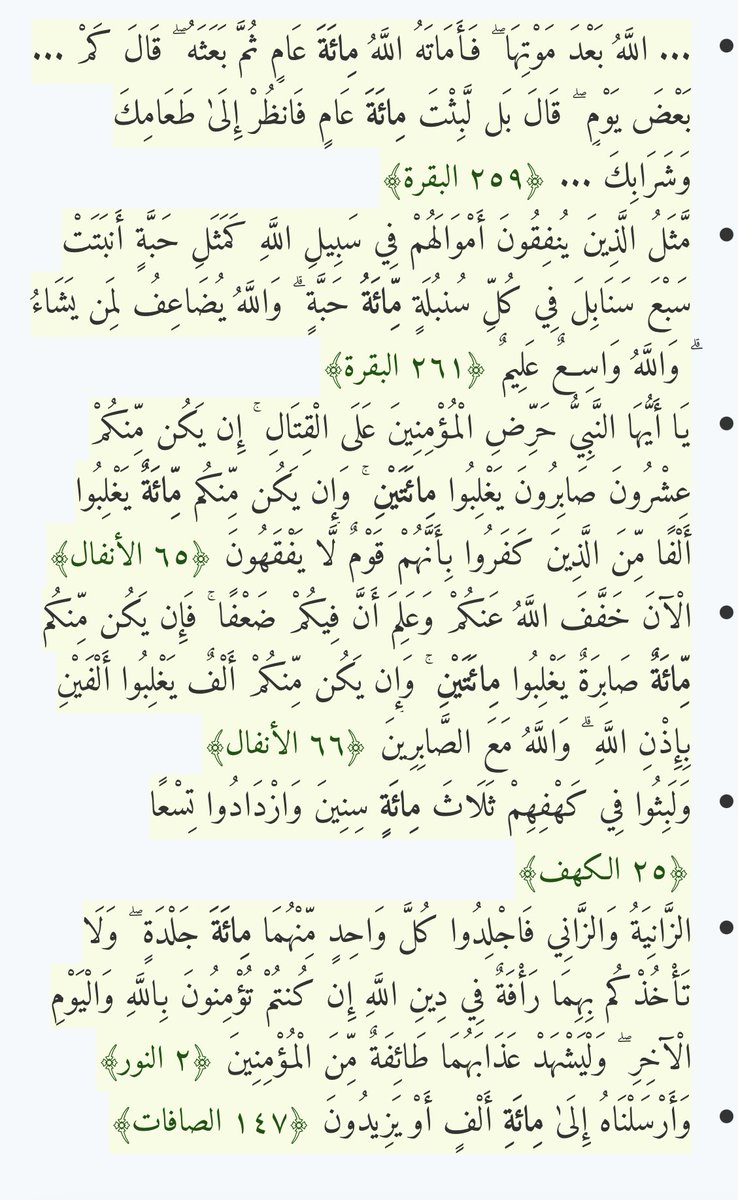 • ... اللَّهُ بَعْدَ مَوْتِهَا ۖ فَأَمَاتَهُ اللَّهُ مِائَةَ عَامٍ ثُمَّ بَعَثَهُ ۖ قَالَ كَمْ ...
بَعْضَ يَوْمٍ ۖ قَالَ بَل لَّبِثْتَ مِائَةَ عَامٍ فَانظُرْ إِلَىٰ طَعَامِكَ
وَشَرَابِكَ ... ﴿٢٥٩ البقرة﴾
• مَّثَلُ الَّذِينَ يُنفِقُونَ أَمْوَالَهُمْ فِي سَبِيلِ اللَّهِ كَمَثَلِ حَبَّةٍ أَنبَتَتْ
سَبْعَ سَنَابِلَ فِي كُلِّ سُنبُلَةٍ مِّائَةُ حَبَّةٍ ۗ وَاللَّهُ يُضَاعِفُ لِمَن يَشَاءُ
ۗ وَاللَّهُ وَاسِعٌ عَلِيمٌ ﴿٢٦١ البقرة﴾
• يَا أَيُّهَا النَّبِيُّ حَرِّضِ الْمُؤْمِنِينَ عَلَى الْقِتَالِ ۚ إِن يَكُن مِّنكُمْ
عِشْرُونَ صَابِرُونَ يَغْلِبُوا مِائَتَيْنِ ۚ وَإِن يَكُن مِّنكُم مِّائَةٌ يَغْلِبُوا
أَلْفًا مِّنَ الَّذِينَ كَفَرُوا بِأَنَّهُمْ قَوْمٌ لَّا يَفْقَهُونَ ﴿٦٥ الأنفال﴾
• الْآنَ خَفَّفَ اللَّهُ عَنكُمْ وَعَلِمَ أَنَّ فِيكُمْ ضَعْفًا ۚ فَإِن يَكُن مِّنكُم
مِّائَةٌ صَابِرَةٌ يَغْلِبُوا مِائَتَيْنِ ۚ وَإِن يَكُن مِّنكُمْ أَلْفٌ يَغْلِبُوا أَلْفَيْنِ
بِإِذْنِ اللَّهِ ۗ وَاللَّهُ مَعَ الصَّابِرِينَ ﴿٦٦ الأنفال﴾
• وَلَبِثُوا فِي كَهْفِهِمْ ثَلَاثَ مِائَةٍ سِنِينَ وَازْدَادُوا تِسْعًا
﴿٢٥ الكهف﴾
• الزَّانِيَةُ وَالزَّانِي فَاجْلِدُوا كُلَّ وَاحِدٍ مِّنْهُمَا مِائَةَ جَلْدَةٍ ۖ وَلَا
تَأْخُذْكُم بِهِمَا رَأْفَةٌ فِي دِينِ اللَّهِ إِن كُنتُمْ تُؤْمِنُونَ بِاللَّهِ وَالْيَوْمِ
الْآخِرِ ۖ وَلْيَشْهَدْ عَذَابَهُمَا طَائِفَةٌ مِّنَ الْمُؤْمِنِينَ ﴿٢ النور﴾
• وَأَرْسَلْنَاهُ إِلَىٰ مِائَةِ أَلْفٍ أَوْ يَزِيدُونَ ﴿١٤٧ الصافات﴾